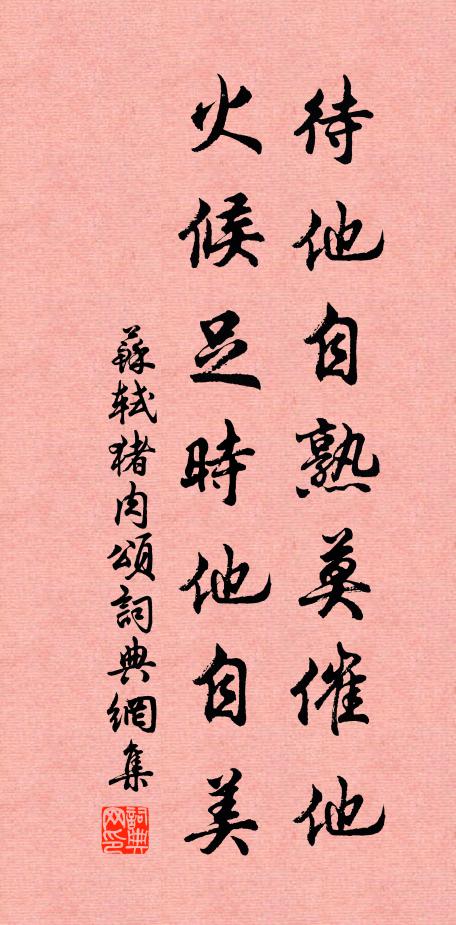 待他自熟莫催他
火候足時他自美
蘇軾猪肉頌詞典網集
詞典网印